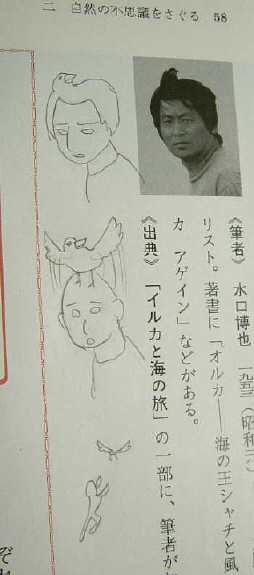 二 自然の不思議をさぐる 58
《筆者》 水口博也 一九五三(昭和
リスト。著書に「オルカ―海の王シャチと風
カ アゲイン」などがある。
《出典》 「イルカと海の旅」の一部に、筆者が
ぞ